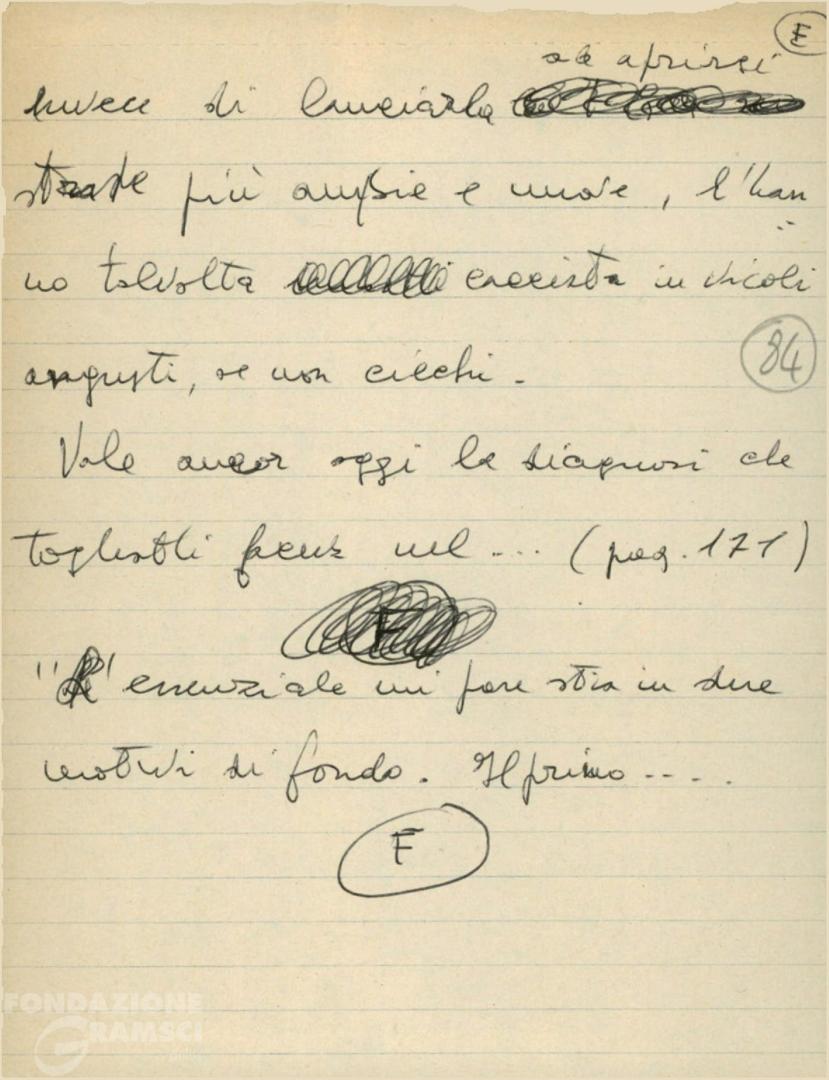 E
ad aprirsi
invece di lanciarla
strade più ampie e nuove, l'han
no talvolta cacciata in vicoli
84
angusti, se non ciechi.
Vale ancor oggi la diagnosi che
Togliatti fece nel .... (pag. 171)
F
"L'essenziale mi pare stia in due
motivi di fondo. Il primo .....
F
FONDAZIONE
GRAMSCI